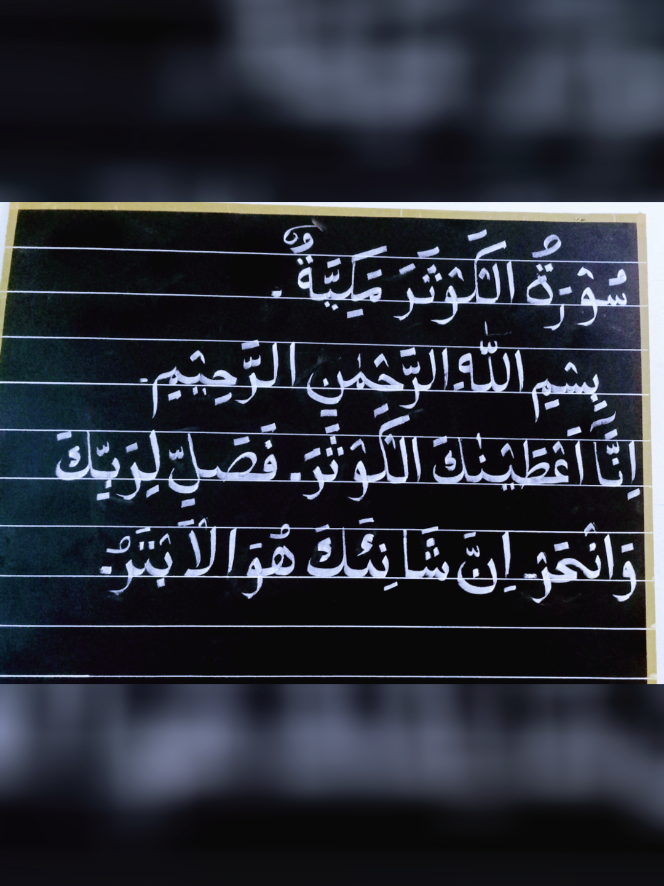 سُوْرَةُ الْكَوْثَرَ مَكِيَّةٌ .
بِسْمِ اللّٰهِ الرَّحْمٰنِ الرَّحِيْمِ.
اِنَّآ اَعْطَيْنٰكَ الْكَوْثَرَ. فَصَلِّ لِرَبِّكَ
وَانْحَرْ. اِنَّ شَانِئَكَ هُوَ الْاَبْتَرُ.